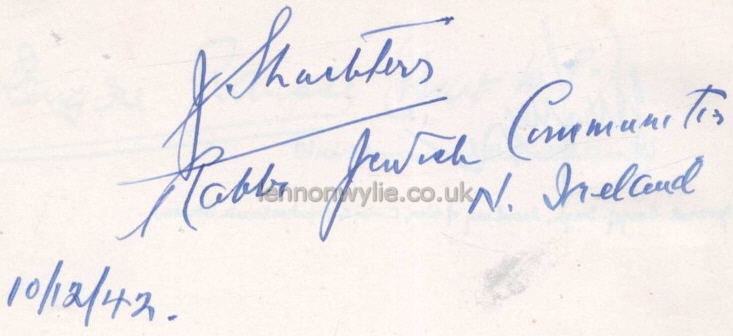 J Shachters
Rabbi Jewish Communities
N. Ireland
lennonwylie.co.uk
10/12/42.